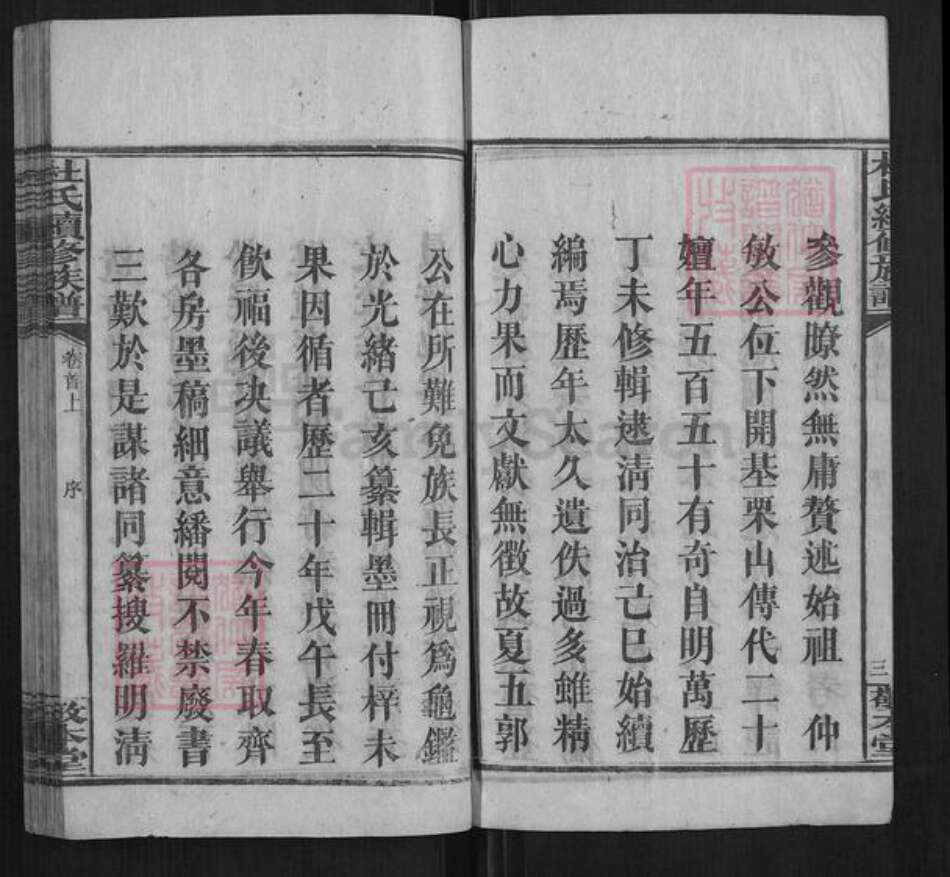 參觀瞭然無庸贅述始祖 仲
敏公位下開基栗山傳代二十
嬗年五百五十有奇自明萬歷
丁未修輯逮淸同治己巳始續
編焉歷年太久遺佚過多雖精
心力果而文獻無徵故夏五郭
公在所難免族長正視爲龜鑑
於光緒己亥纂輯墨冊付梓未
果因循者歷二十年戊午長至
飮福後决議舉行今年春取齊
各房墨稿細意繙閱不禁廢書
三歎於是謀諸同纂搜羅明淸
杜氏續修族譜
卷首上
序
敦本堂
三
FamilySearch